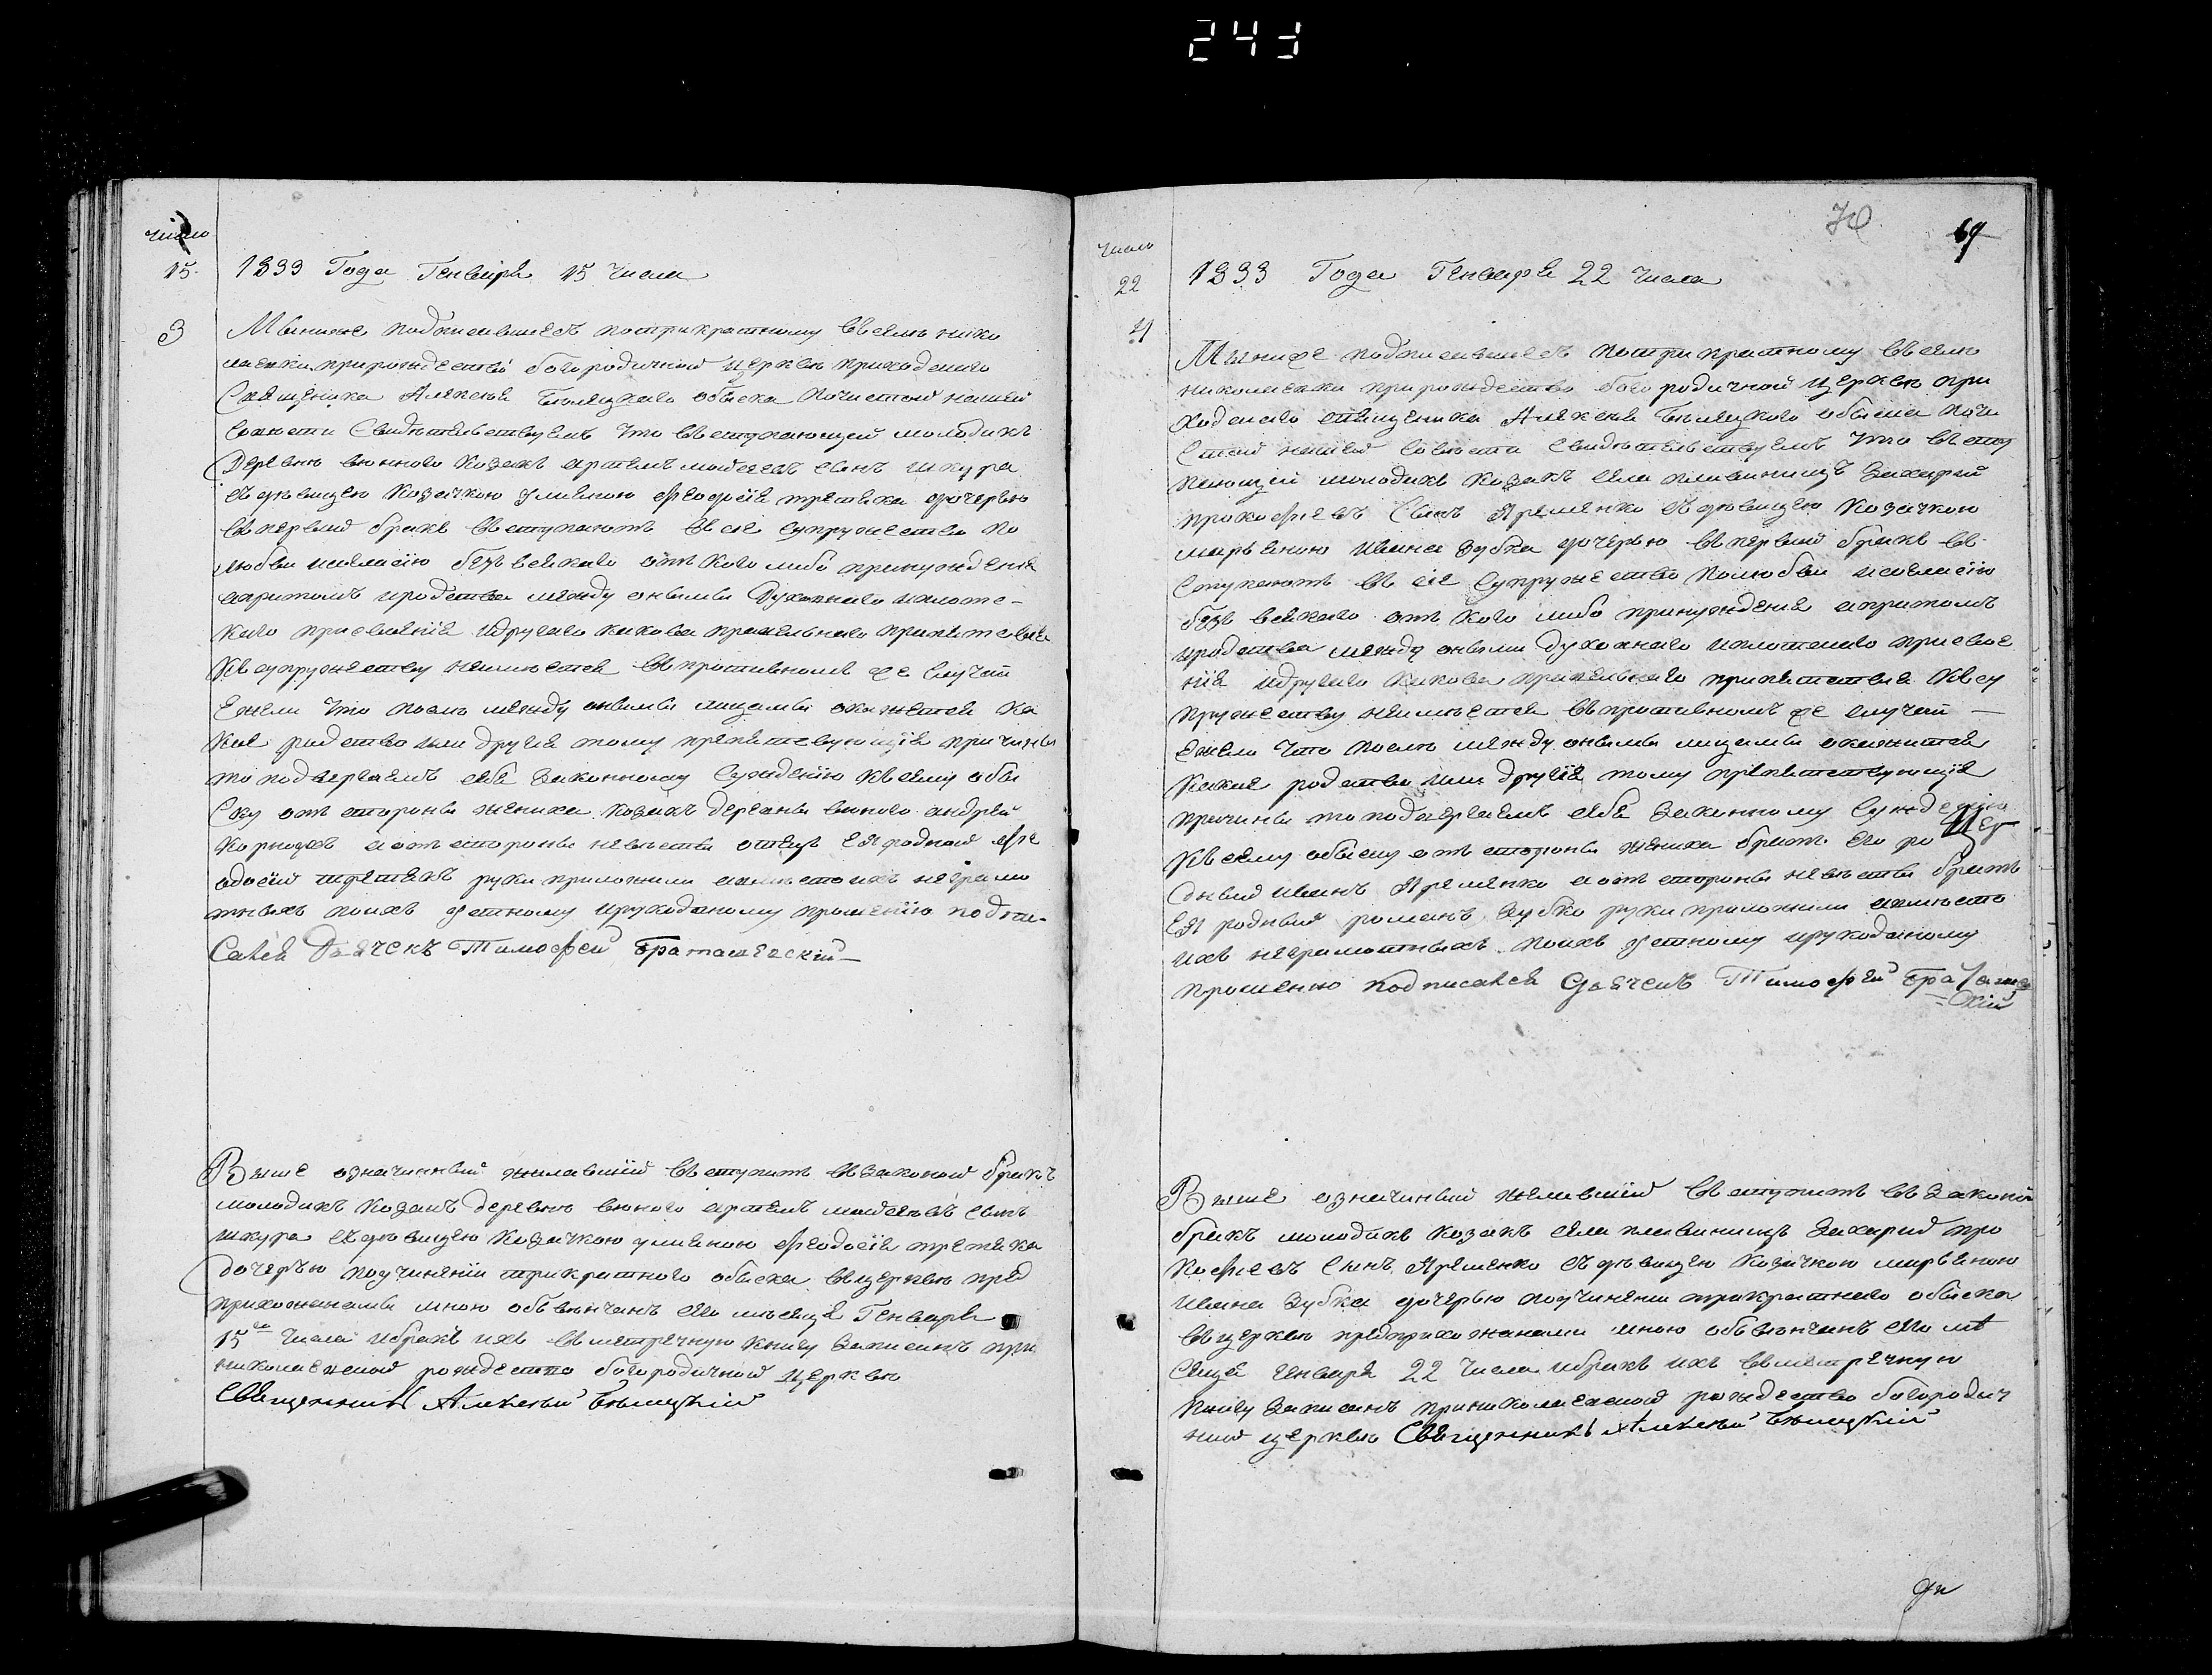 243
число
15.
1833 Года Генваря 15 Числа
3
Мы ниже подписавшіесь потрикратному въ селѣ нико
лаевки при рождество богородичной церквѣ приходского
Священика Алексея Бѣлецкаго обыска почистой нашей
совѣсти Свидѣтельствуемъ что въступающей молодикъ
Деревнѣ вюнного козакъ артемъ моисеевъ сынъ шкура
съ дѣвицею козачкою улияною феодосія третяка дочерью
въ первый бракъ въступаютъ въ сіе супружество по
любви исогласію безъ всякаго отъ кого либо принужденія
апритомъ иродства между оными Духовнаго иплотс-
каго присвоенія идругаго какова правильнаго препятсвія
къ супружеству неимѣется въ противномъ же случаи
ежели что послѣ между оными лицами окажется ка
кое родство или другія тому препятсвующія причины
то подвергаемъ себя законному сужденію къ сему обы
ску отъ стороны жениха козакъ деревны вюного андрей
корнѣевъ аотъ стороны невѣсты отецъ ея родной фе
одосій третякъ руки приложили авместо ихъ неграмо
тныхъ поихъ устному ирукоданому прошенію подпи-
Сался Дьячекъ Тимофей Браташевскій
Выше означинный желавшій въступить въ законой бракъ
молодикъ козакъ деревнѣ вюного артемъ моисеевъ сынъ
шкура съ дѣвицею козачкою улияною феодосія третяка
дочерью поучиненіи трикратного обыска въ церквѣ пред
прихожанами мною обвѣнчанъ сего мѣсяца Генваря
15го числа ибракъ ихъ въ метричную книгу записанъ при
николаевской рождество богородичной церквѣ
Священникъ Алексѣй Бѣлецкій
70
69
число
22
1833 Года Генваря 22 числа
4
Мы ниже подписавшіесь потрикратному въ селѣ
николаевки при рождество богородичной церквѣ при
ходского священика Алексея Бѣлецкого обыска почи
стой нашей совѣсти Свидѣтельствуемъ что въсту
пающей молодикъ козакъ села плевиницъ захарій
прокофіевъ сынъ Яременко съ дѣвицею козачкою
марьяною ивана зубка дочерью въ первый бракъ въ
ступаютъ въ сіе супружество полюбви исогласію
безъ всякаго отъ кого либо принужденія апритомъ
иродства между оными духовнаго иплотскаго присвое
нія идругаго какова правильнаго препятствія къ су
пружеству неимѣется въ противномъ же случаи
ежели что послѣ между оными лицами окажится
какое родство или другія тому препятствующія
причины то подвергаемъ себя законному сужденію
къ сему обыску отъ стороны жениха братъ его ро
дный иванъ Яременко аотъ стороны невѣсты братъ
ея родный романъ зубко руки приложили авмѣсто
ихъ неграмотныхъ поихъ устному ирукоданому
прошенію подписался Дьячекъ Тимофей Браташев
=скій
Выше означиный желавшій въступить въ законой
бракъ молодикъ козакъ села плевиницъ захарій про
кофіевъ сынъ Яременко съ дѣвицею козачкою марьяною
ивана зубка дочерью поучиненіи трикратнаго обыска
въ церквѣ предприхожанами мною обвѣнчанъ сего мѣ
сяца генваря 22 числа ибракъ ихъ въ метричную
книгу записанъ приниколаевской рождество богородич
ной церквѣ Священникъ Алексѣй Бѣлецкій